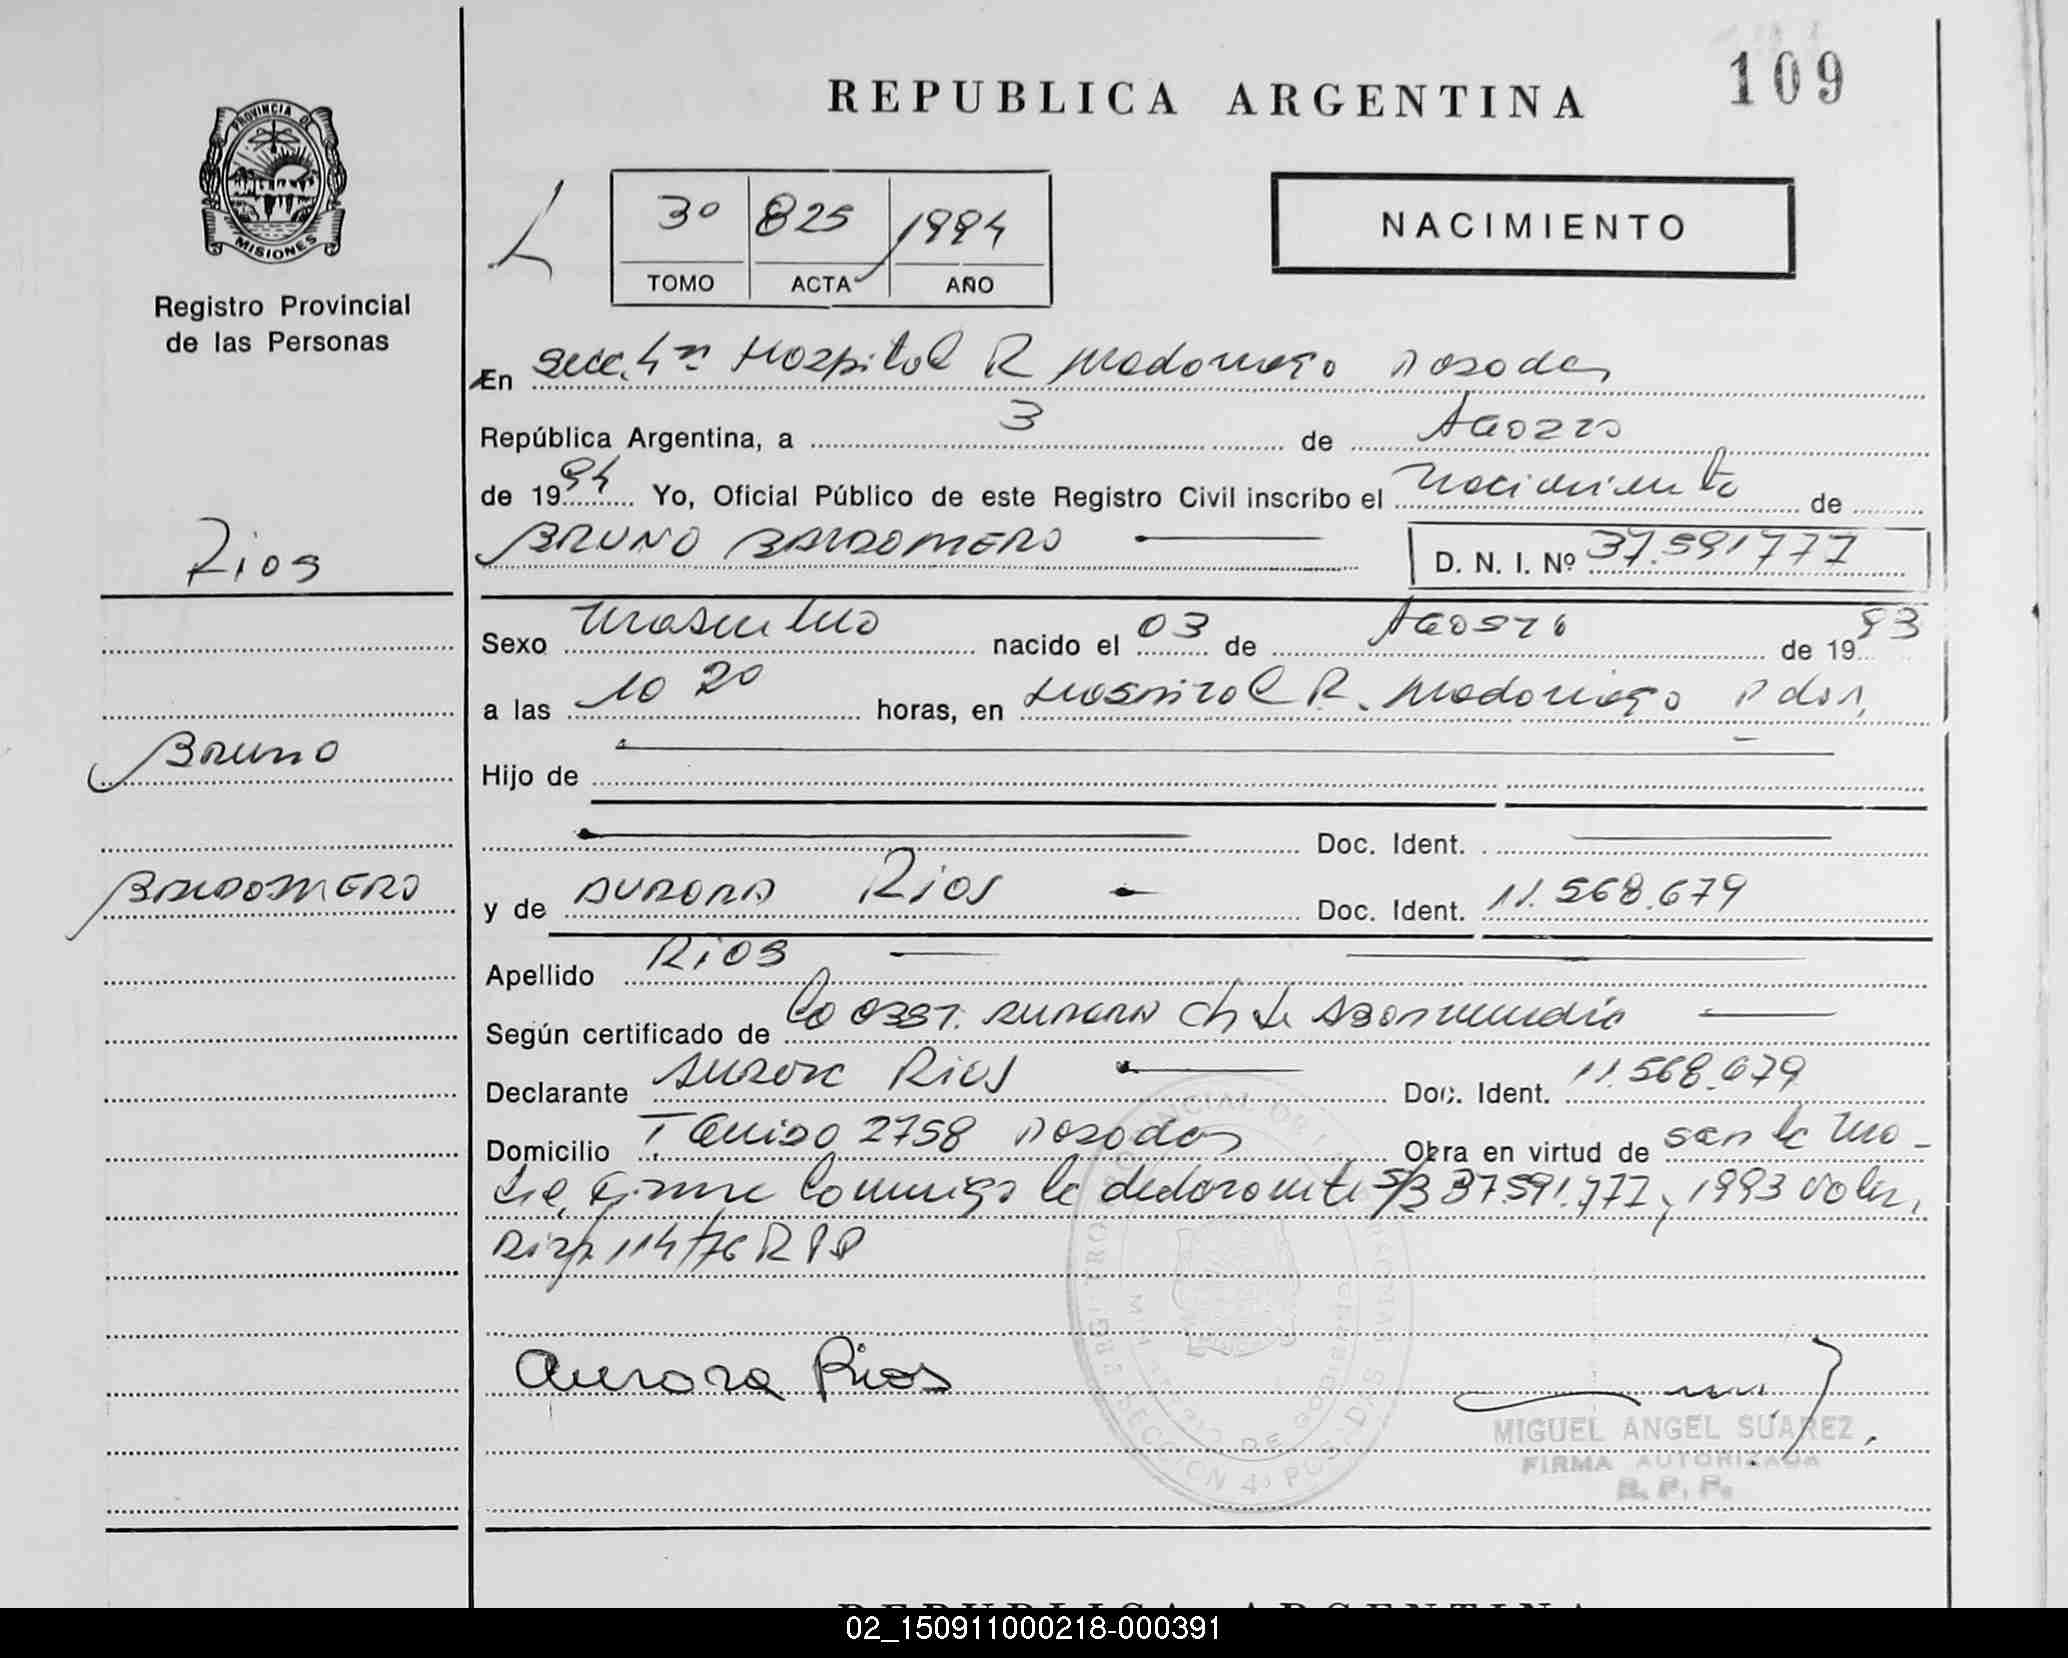 109
REPUBLICA ARGENTINA
PROVINCIA DE
MISIONES
Registro Provincial
de las Personas
3º 825 1994
TOMO ACTA AÑO
NACIMIENTO
En Secc. 4ª Hospital R Madariaga Posadas
República Argentina, a 3 de Agosto
de 1994 Yo, Oficial Público de este Registro Civil inscribo el Nacimiento de
Rios
BRUNO BALDOMERO D. N. I. Nº 37.591777
Sexo Masculino nacido el 03 de Agosto de 1993
a las 10 20 horas, en Hospital R. Madariaga Pdas,
Bruno
Hijo de
Doc. Ident.
BALDOMERO
y de AURORA Rios Doc. Ident. 11.568.679
Apellido Rios
Según certificado de la OBST. AURORA Ch de
Declarante Aurora Rios Doc. Ident. 11.568.679
Domicilio 2758 Posadas Obra en virtud de ser la ma-
dre, firma conmigo la declarante S/B 37.591.777, 1993 Valen,
Disp 114/76 R P P
Aurora Rios
MIGUEL ANGEL SUAREZ
FIRMA AUTORIZADA
R. P. P.
SECCION 4ª POSADAS
REPUBLICA ARGENTINA
02_150911000218-000391